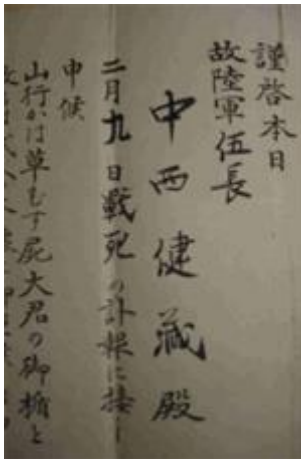 謹啓本日
故陸軍伍長
中西健蔵殿
二月九日戰死の訃報に接し
申候
山行かは草むす屍大君の御楯と